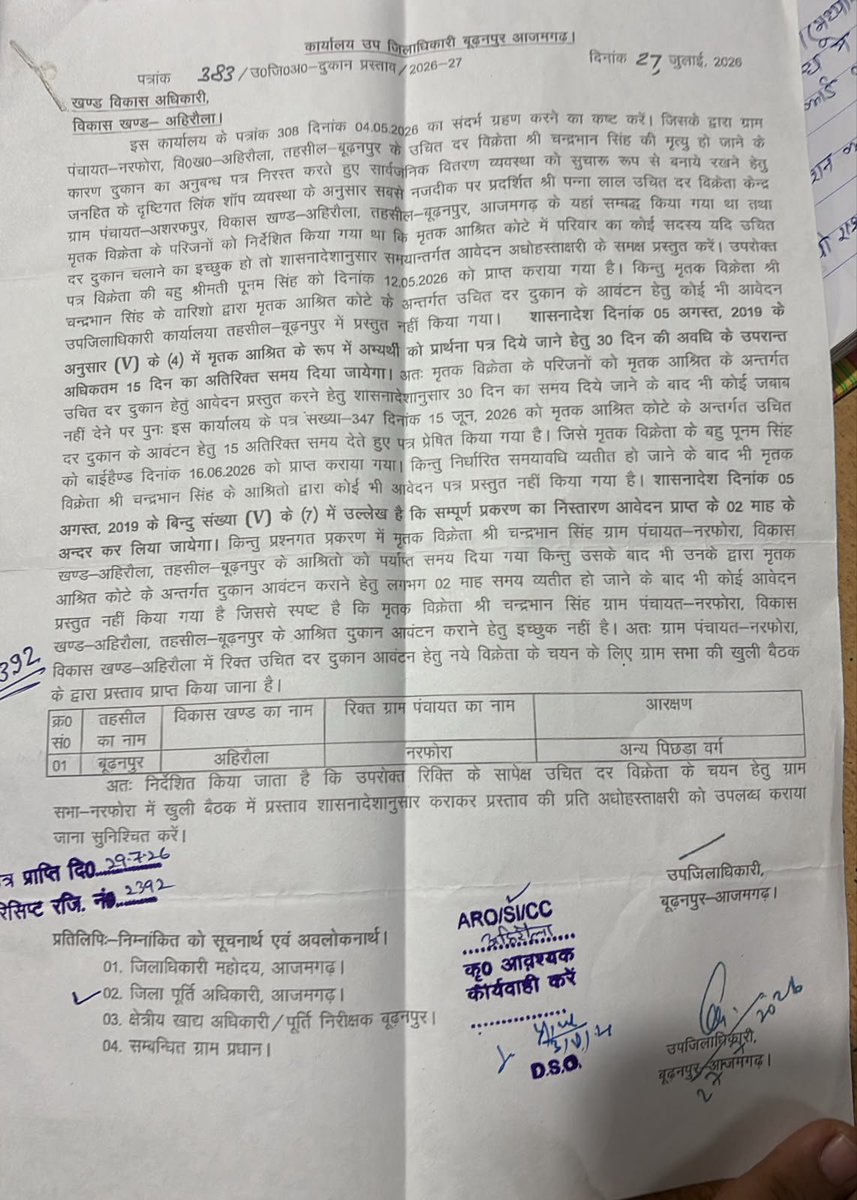 कार्यालय उप जिलाधिकारी बूढ़नपुर आजमगढ़।
पत्रांक 383/उ0जि0अ0-दुकान प्रस्ताव/2026-27 दिनांक 27 जुलाई, 2026
खण्ड विकास अधिकारी,
विकास खण्ड- अहिरौला।
इस कार्यालय के पत्रांक 308 दिनांक 04.05.2026 का संदर्भ ग्रहण करने का कष्ट करें। जिसके द्वारा ग्राम
पंचायत-नरफोरा, वि0ख0-अहिरौला, तहसील-बूढ़नपुर के उचित दर विक्रेता श्री चन्द्रभान सिंह की मृत्यु हो जाने के
कारण दुकान का अनुबन्ध पत्र निरस्त करते हुए सार्वजनिक वितरण व्यवस्था को सुचारू रूप से बनाये रखने हेतु
जनहित के दृष्टिगत लिंक शॉप व्यवस्था के अनुसार सबसे नजदीक पर प्रदर्शित श्री पन्ना लाल उचित दर विक्रेता केन्द्र
ग्राम पंचायत-अशरफपुर, विकास खण्ड-अहिरौला, तहसील-बूढ़नपुर, आजमगढ़ के यहां सम्बद्ध किया गया था तथा
मृतक विक्रेता के परिजनों को निर्देशित किया गया था कि मृतक आश्रित कोटे में परिवार का कोई सदस्य यदि उचित
दर दुकान चलाने का इच्छुक हो तो शासनादेशानुसार समयान्तर्गत आवेदन अधोहस्ताक्षरी के समक्ष प्रस्तुत करें। उपरोक्त
पत्र विक्रेता की बहु श्रीमती पूनम सिंह को दिनांक 12.05.2026 को प्राप्त कराया गया है। किन्तु मृतक विक्रेता श्री
चन्द्रभान सिंह के वारिशो द्वारा मृतक आश्रित कोटे के अन्तर्गत उचित दर दुकान के आवंटन हेतु कोई भी आवेदन
उपजिलाधिकारी कार्यालया तहसील-बूढ़नपुर में प्रस्तुत नहीं किया गया। शासनादेश दिनांक 05 अगस्त, 2019 के
अनुसार (V) के (4) में मृतक आश्रित के रूप में अभ्यर्थी को प्रार्थना पत्र दिये जाने हेतु 30 दिन की अवधि के उपरान्त
अधिकतम 15 दिन का अतिरिक्त समय दिया जायेगा। अतः मृतक विक्रेता के परिजनों को मृतक आश्रित के अन्तर्गत
उचित दर दुकान हेतु आवेदन प्रस्तुत करने हेतु शासनादेशानुसार 30 दिन का समय दिये जाने के बाद भी कोई जबाब
नहीं देने पर पुनः इस कार्यालय के पत्र संख्या-347 दिनांक 15 जून, 2026 को मृतक आश्रित कोटे के अन्तर्गत उचित
दर दुकान के आवंटन हेतु 15 अतिरिक्त समय देते हुए पत्र प्रेषित किया गया है। जिसे मृतक विक्रेता के बहु पूनम सिंह
को बाईहैण्ड दिनांक 16.06.2026 को प्राप्त कराया गया। किन्तु निर्धारित समयावधि व्यतीत हो जाने के बाद भी मृतक
विक्रेता श्री चन्द्रभान सिंह के आश्रितो द्वारा कोई भी आवेदन पत्र प्रस्तुत नहीं किया गया है। शासनादेश दिनांक 05
अगस्त, 2019 के बिन्दु संख्या (V) के (7) में उल्लेख है कि सम्पूर्ण प्रकरण का निस्तारण आवेदन प्राप्त के 02 माह के
अन्दर कर लिया जायेगा। किन्तु प्रश्नगत प्रकरण में मृतक विक्रेता श्री चन्द्रभान सिंह ग्राम पंचायत-नरफोरा, विकास
खण्ड-अहिरौला, तहसील-बूढ़नपुर के आश्रितो को पर्याप्त समय दिया गया किन्तु उसके बाद भी उनके द्वारा मृतक
आश्रित कोटे के अन्तर्गत दुकान आवंटन कराने हेतु लगभग 02 माह समय व्यतीत हो जाने के बाद भी कोई आवेदन
प्रस्तुत नहीं किया गया है जिससे स्पष्ट है कि मृतक विक्रेता श्री चन्द्रभान सिंह ग्राम पंचायत-नरफोरा, विकास
खण्ड-अहिरौला, तहसील-बूढ़नपुर के आश्रित दुकान आवंटन कराने हेतु इच्छुक नहीं है। अतः ग्राम पंचायत-नरफोरा,
392 विकास खण्ड-अहिरौला में रिक्त उचित दर दुकान आवंटन हेतु नये विक्रेता के चयन के लिए ग्राम सभा की खुली बैठक
के द्वारा प्रस्ताव प्राप्त किया जाना है।
क्र0 सं0 तहसील का नाम विकास खण्ड का नाम रिक्त ग्राम पंचायत का नाम आरक्षण
01 बूढ़नपुर अहिरौला नरफोरा अन्य पिछडा वर्ग
अतः निर्देशित किया जाता है कि उपरोक्त रिक्ति के सापेक्ष उचित दर विक्रेता के चयन हेतु ग्राम
सभा-नरफोरा में खुली बैठक में प्रस्ताव शासनादेशानुसार कराकर प्रस्ताव की प्रति अधोहस्ताक्षरी को उपलब्ध कराया
जाना सुनिश्चित करें।
त्र प्राप्ति दि0 29-7-26
रिसिप्ट रजि. नं0 2392
उपजिलाधिकारी,
बूढ़नपुर-आजमगढ़।
ARO/SI/CC
अहिरौला
कृ0 आवश्यक
कार्यवाही करें
D.S.O.
प्रतिलिपिः-निम्नांकित को सूचनार्थ एवं अवलोकनार्थ।
01. जिलाधिकारी महोदय, आजमगढ़।
02. जिला पूर्ति अधिकारी, आजमगढ़।
03. क्षेत्रीय खाद्य अधिकारी/पूर्ति निरीक्षक बूढ़नपुर।
04. सम्बन्धित ग्राम प्रधान।
उपजिलाधिकारी,
बूढ़नपुर-आजमगढ़।